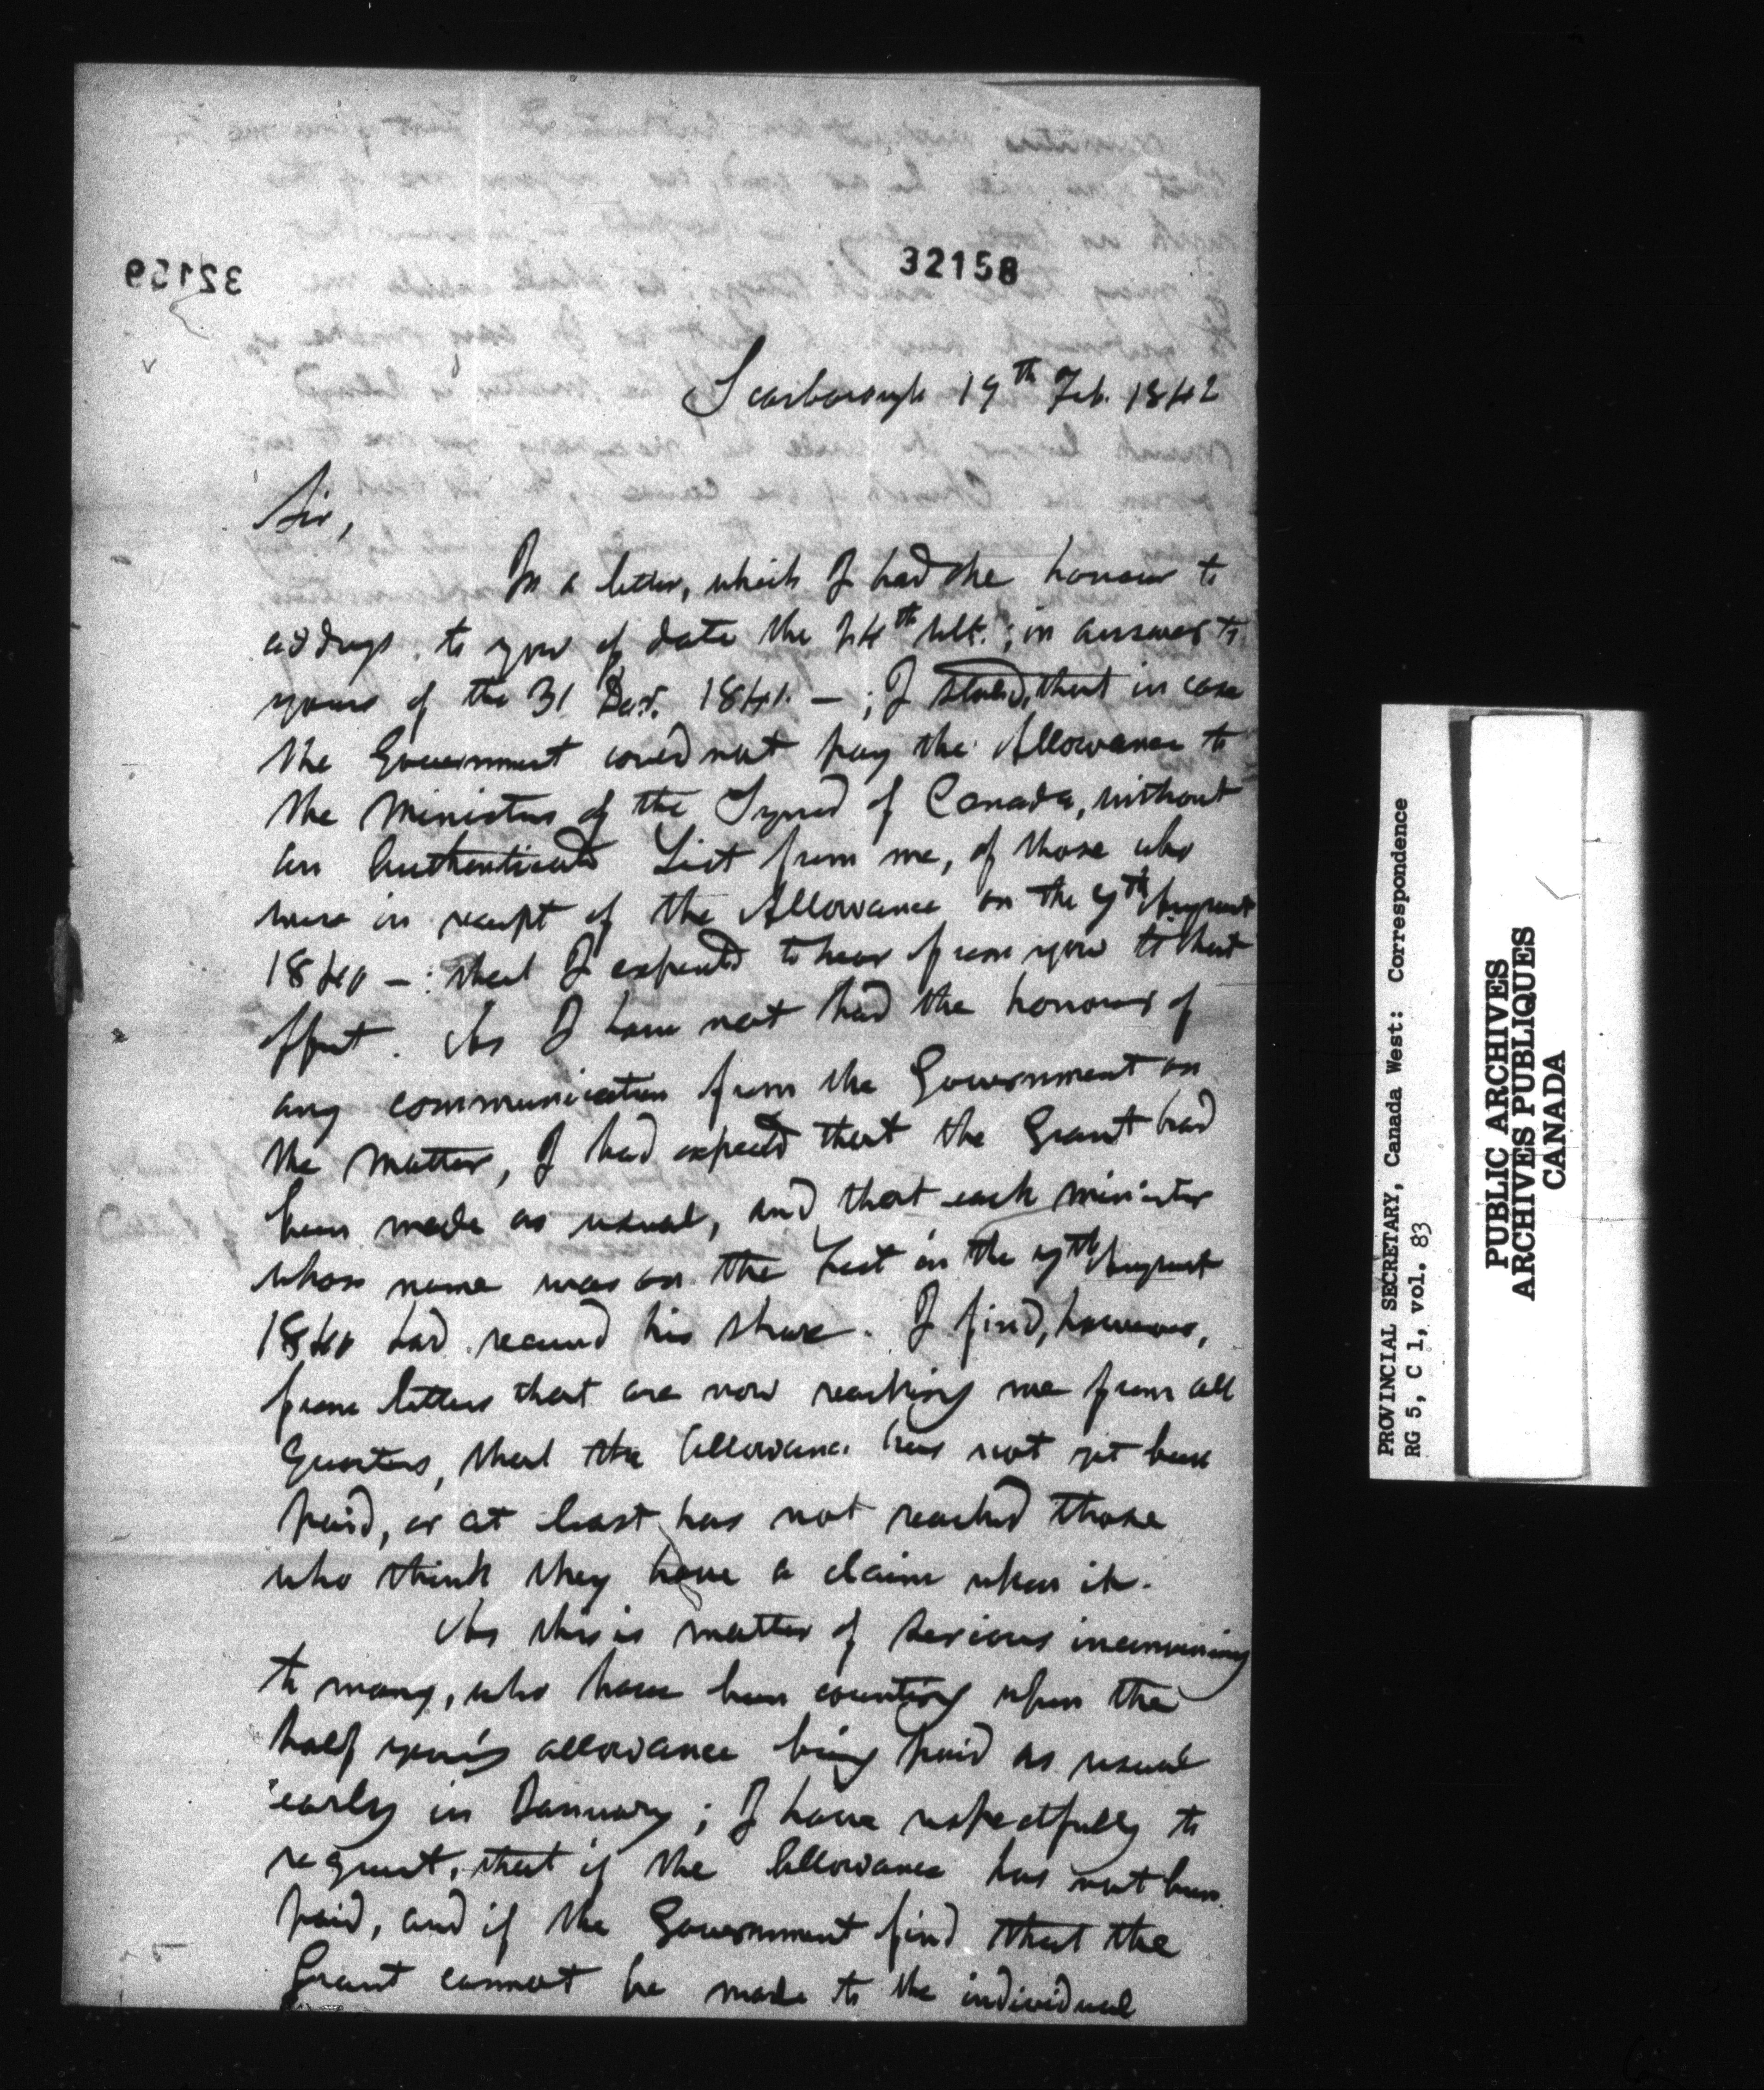 32158
32159
Scarborough 19th Feb. 1842
Sir,
In a letter, which I had the honour to
address to you of date the 24th ult.; in answer to
yours of the 31 Decr. 1841. —; I stated, that in case
the Government could not pay the Allowance to
the Ministers of the Synod of Canada, without
an authenticated List from me, of those who
were in receipt of the Allowance on the 7th August
1840 —: that I expected to hear from you to that
effect. As I have not had the honour of
any communication from the Government on
the matter, I had expected that the Grant had
been made as usual, and that each minister
whose name was on the List on the 7th August
1840 had received his share. I find, however,
from letters that are now reaching me from all
Quarters, that the Allowance has not yet been
paid, or at least has not reached those
who think they have a claim upon it.
As this is matter of serious
to many, who have been counting upon the
half year's allowance being paid as usual
early in January; I have respectfully to
request, that if the Allowance has not been
paid, and if the Government find that the
Grant cannot be made to the individual
PROVINCIAL SECRETARY, Canada West: Correspondence
RG 5, C 1, vol. 83
PUBLIC ARCHIVES
ARCHIVES PUBLIQUES
CANADA